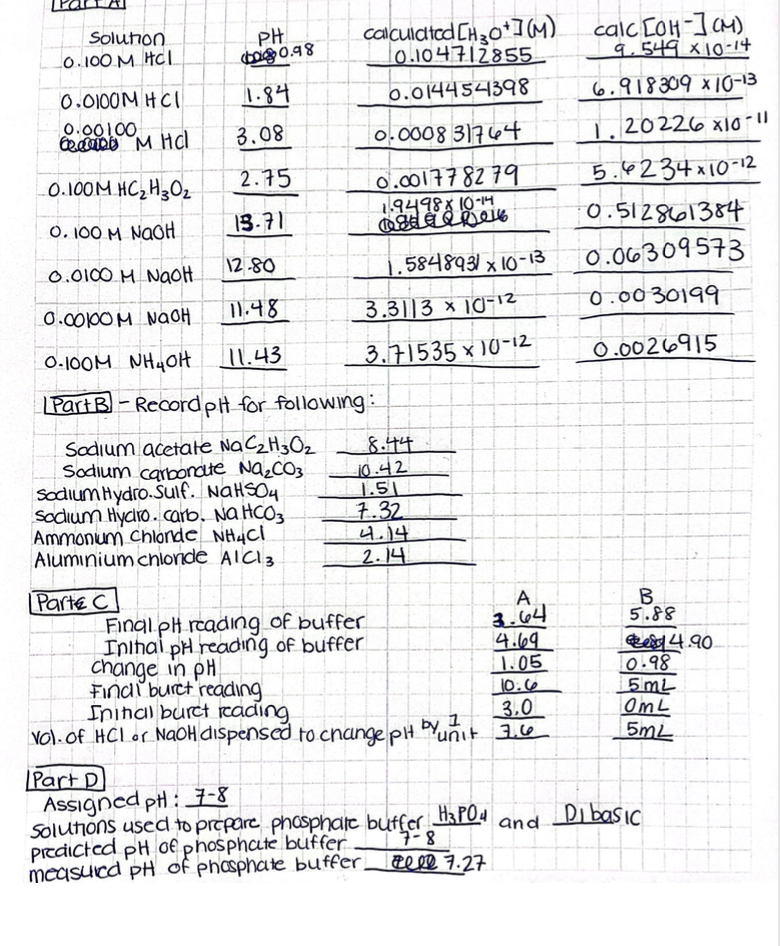 Part A
Solution pH calculated [H3O+] (M) calc [OH-] (M)
0.100 M HCl 0.98 0.104712855 9.549 × 10-14
0.0100M HCl 1.84 0.014454398 6.918309 × 10-13
0.00100 M HCl 3.08 0.000831764 1.20226 × 10-11
0.100M HC2H3O2 2.75 0.001778279 5.6234 × 10-12
0.100 M NaOH 13.71 1.9498 × 10-14 0.512861384
0.0100 M NaOH 12.80 1.5848931 × 10-13 0.06309573
0.00100M NaOH 11.48 3.3113 × 10-12 0.0030199
0.100M NH4OH 11.43 3.71535 × 10-12 0.0026915
Part B - Record pH for following:
Sodium acetate NaC2H3O2 8.44
Sodium carbonate Na2CO3 10.42
Sodium Hydro. Sulf. NaHSO4 1.51
Sodium Hydro. carb. NaHCO3 7.32
Ammonium Chloride NH4Cl 4.14
Aluminium chloride AlCl3 2.14
Parte C A B
Final pH reading of buffer 3.64 5.88
Initial pH reading of buffer 4.69 4.90
Change in pH 1.05 0.98
Final buret reading 10.6 5mL
Initial buret reading 3.0 0mL
Vol. of HCl or NaOH dispensed to change pH by 1 unit 7.6 5mL
Part D
Assigned pH: 7-8
Solutions used to prepare phosphate buffer H3PO4 and Dibasic
predicted pH of phosphate buffer 7-8
measured pH of phosphate buffer 7.27